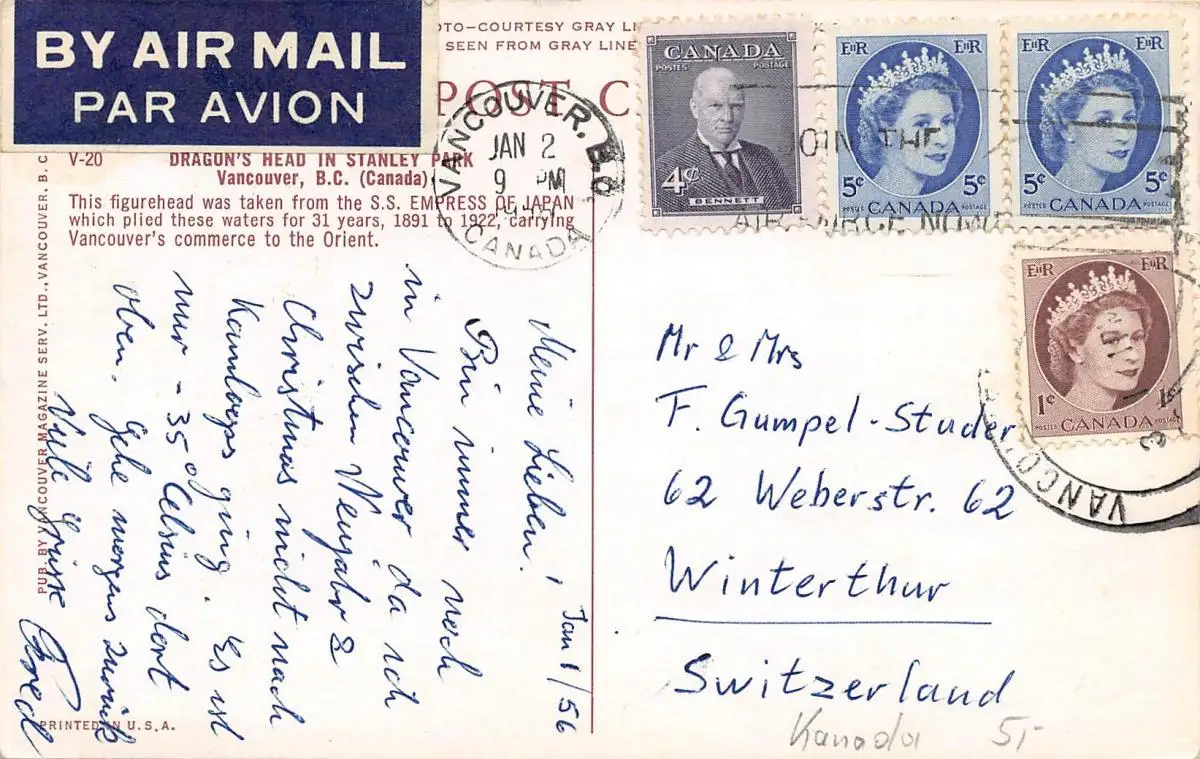 BY AIR MAIL
PAR AVION
OTO—COURTESY GRAY
SEEN FROM GRAY LINE
POST C
V-20
DRAGON'S HEAD IN STANLEY PARK
Vancouver, B.C. (Canada)
This figurehead was taken from the S.S. EMPRESS OF JAPAN
which plied these waters for 31 years, 1891 to 1922, carrying
Vancouver's commerce to the Orient.
PUB. BY VANCOUVER MAGAZINE SERV. LTD., VANCOUVER, B. C.
PRINTED IN U.S.A.
VANCOUVER. B.C.
JAN 2
9 PM
CANADA
CANADA
POSTES POSTAGE
4¢
BENNETT
EIIR EIIR
5¢ 5¢
POSTES CANADA POSTAGE
EIIR EIIR
5¢ 5¢
POSTES CANADA POSTAGE
EIIR EIIR
1¢ 1¢
POSTES CANADA POSTAGE
JOIN THE
AIR FORCE NOW
VANCO
Jan 1/56
Meine Lieben!
Bin immer noch
in Vancouver da ich
zwischen Neujahr &
Christmas nicht nach
Kamloops ging. Es ist
nur -35° Celsius dort
oben. Gehe morgens zurück
Viele Grüsse Fred
Mr & Mrs
F. Gumpel-Studer
62 Weberstr. 62
Winterthur
Switzerland
Kanada 5,-